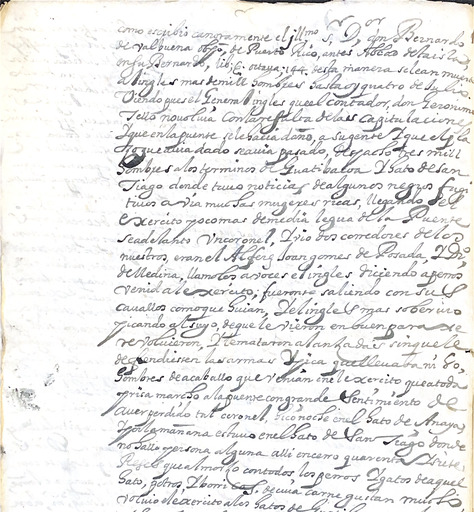 como escribio canoramente el illmo s, Dor don Bernardo
de valbuena obpo, de Puerto Rico, antes Abbad de
en su Bernardo, lib. octava, 144, desta manera selean muer
Ingleses mas de mill hombres hasta quatro de Julio
Viendo pues el General ingles que el contador, don Geronimo
Tello no volvia con la respuesta de las capitulaciones
Y que en la puente se le hacia daño, a su gente Y que el plazo
que avia dado se avia pasado, despacho tres mill
hombres a los terminos de Guatibacoa Y hato de san
Tiago donde tuvo noticias de algunos negros fugi
tivos avia muchas mugeres ricas, llegando el
exercito poco mas de media legua de la Puente
se adelanto Un coronel, Y vio dos corredores de los
nuestros, eran el Alferez Joan gomes de Posada, Y Don
de Medina, llamolos a voces el ingles diciendo
venid al exercito; fueronse saliendo con sus
cavallos como que huian, Y el ingles mas sobervio
picando al suyo, de que le vieron en buen paraxe
revolvieron, Y le mataron a lançadas sin que le
defendiessen las armas Y pica que llevaba ni
hombres de acaballo que venian en el exercito que a toda
prisa marcho a la puente con grande Sentimiento de
aver perdido tal coronel, hiço noche en el hato de Anaya
Y por la mañana estuvo en el hato de San Tiago donde
no hallo persona alguna alli encerro quarenta Y siete
Reses que almorço con todos los perros Y gatos de aquel
hato, potros Y borricas, de cuia carne gustan mucho
volvio el exercito a los hatos de